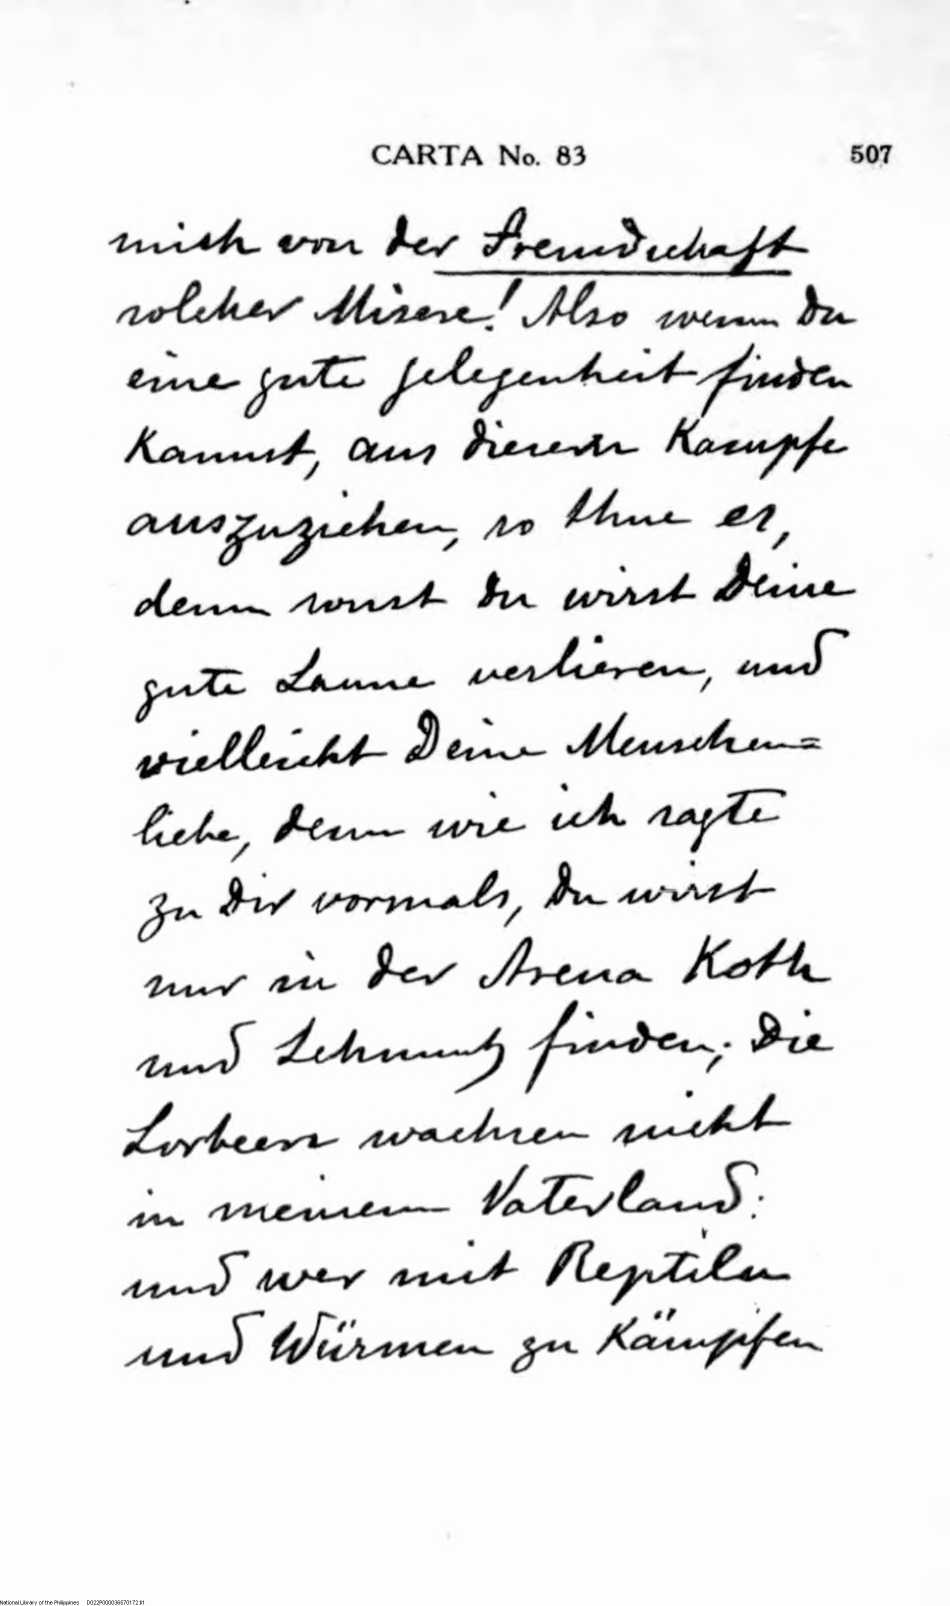 CARTA No. 83 507
mich von der Fremdschaft
solcher Misere! Also wenn Du
eine gute Gelegenheit finden
kannst, aus diesem Kampfe
auszuziehen, so thue es,
denn sonst Du wirst Deine
gute Laune verlieren, und
vielleicht Deine Menschen=
liebe, denn wie ich sagte
zu Dir vormals, Du wirst
nur in der Arena Koth
und Schmutz finden; Die
Lorbeern wachsen nicht
in meinem Vaterland:
und wer mit Reptilen
und Würmen zu kämpfen
National Library of the Philippines D022R000036670172.tif